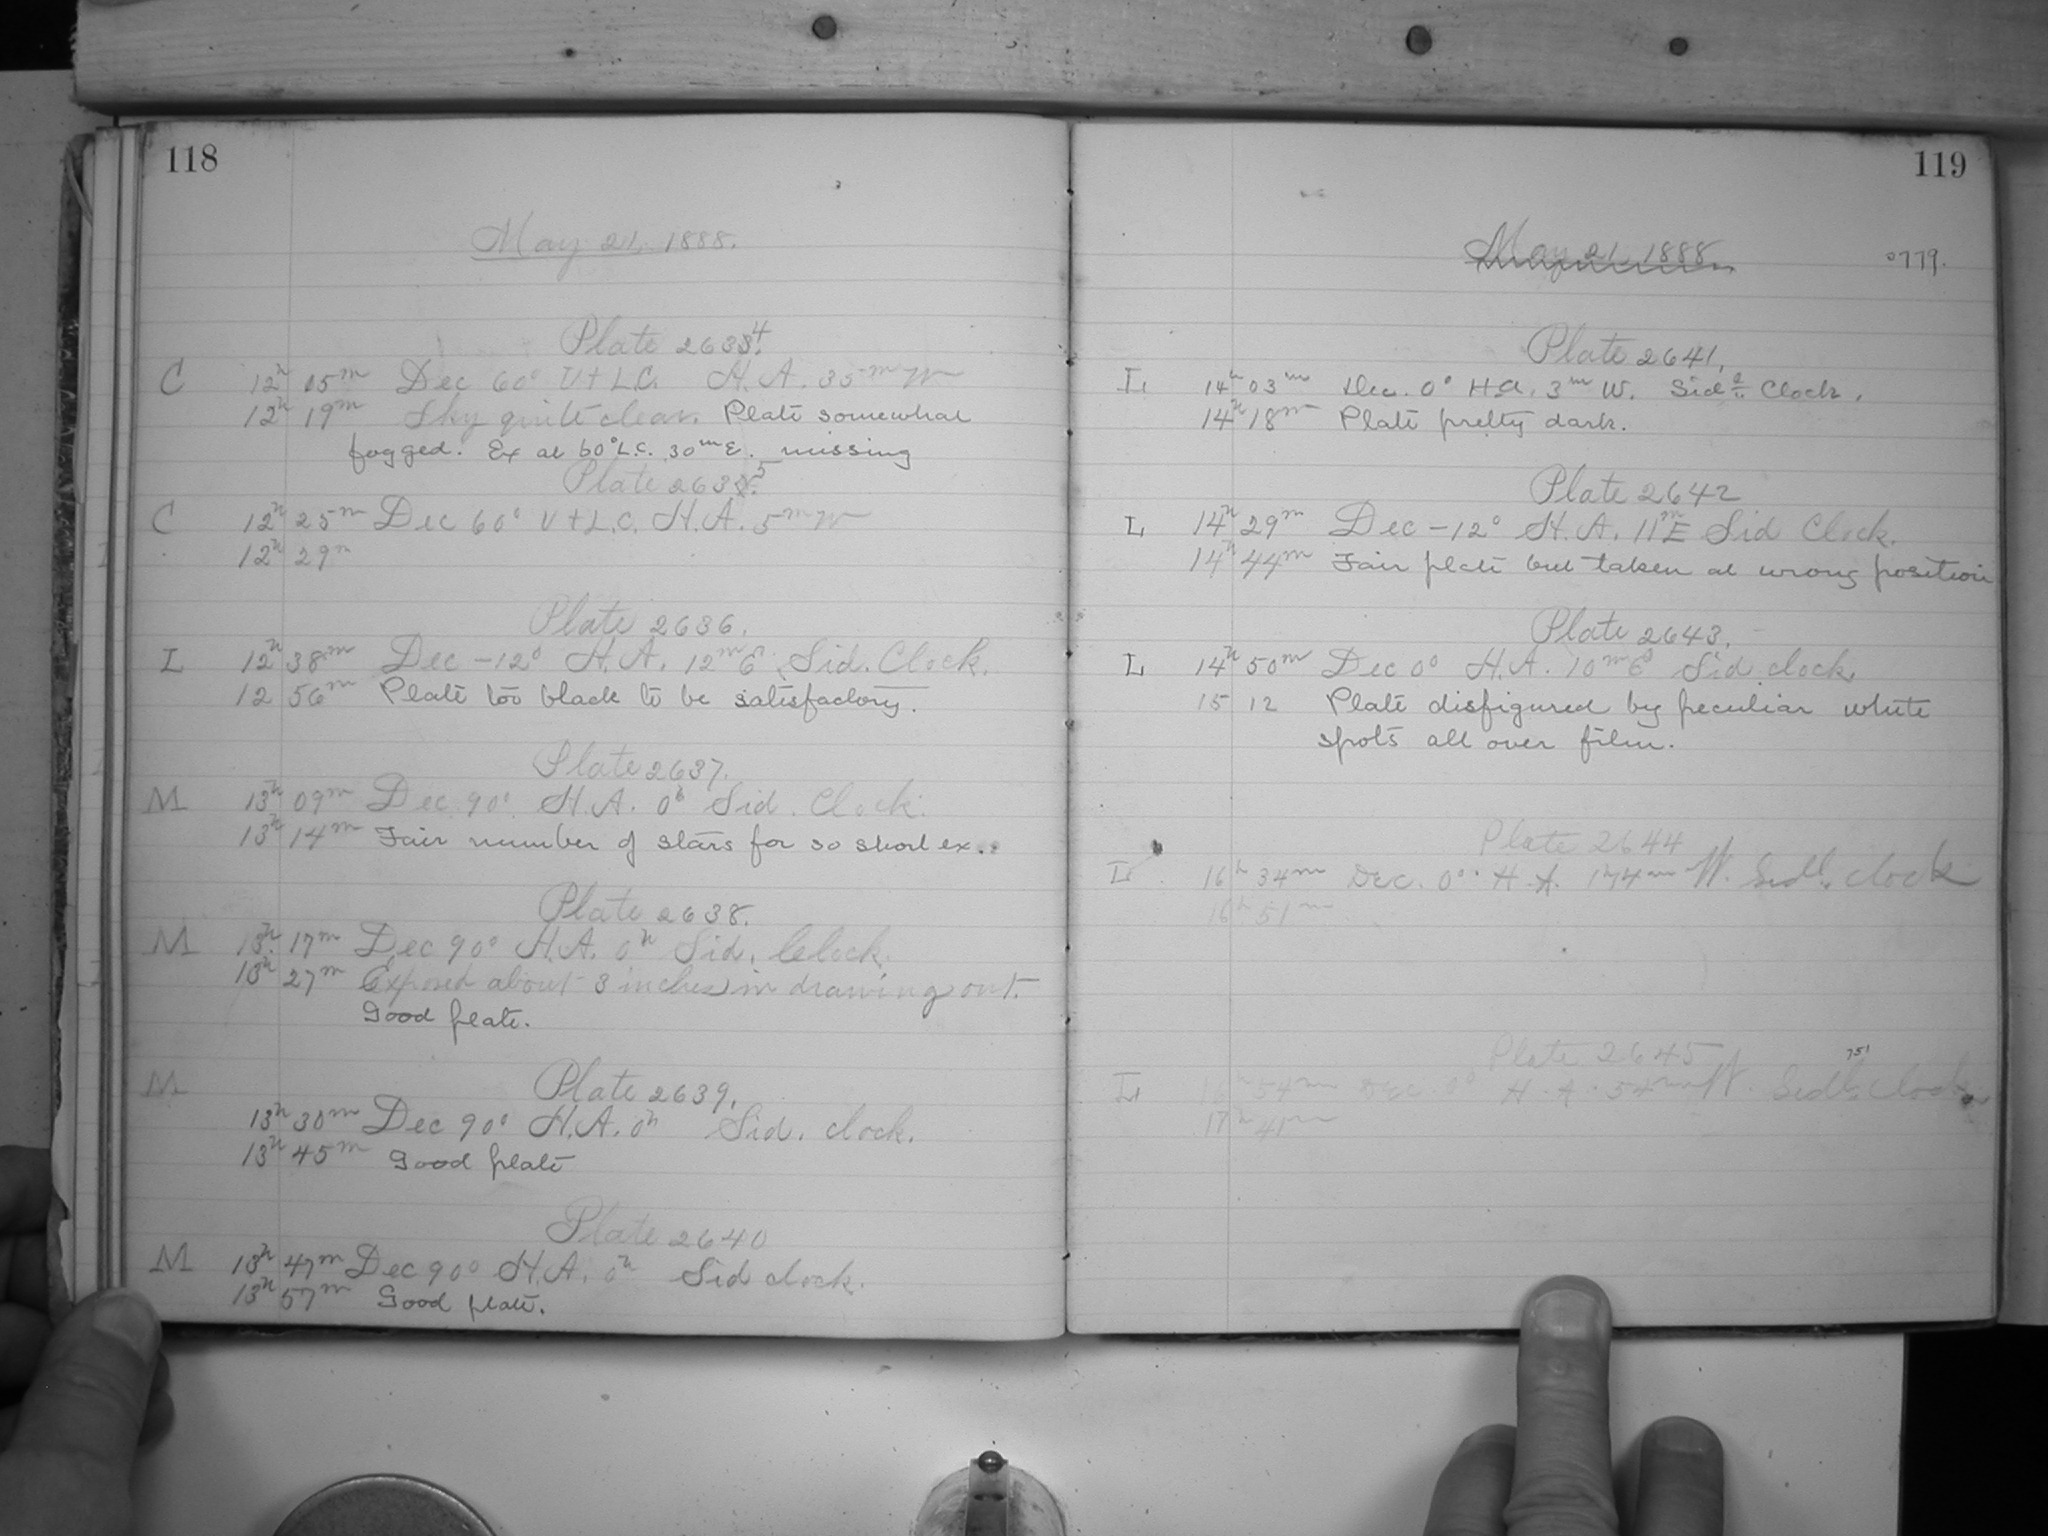 118
May 21, 1888.
Plate 2634.
C 12h 05m Dec 60° U+L.C. H.A. 35m W
12h 19m Sky quite clear. Plate somewhat
fogged. Ex at 60° L.C. 30m E. missing
Plate 2635.
C 12h 25m Dec 60° U+L.C. H.A. 5m W
12h 29m
Plate 2636.
L 12h 38m Dec -12° H.A. 12m E Sid. Clock.
12 56m Plate too black to be satisfactory.
Plate 2637.
M 13h 09m Dec 90° H.A. 0h Sid. Clock.
13h 14m Fair number of stars for so short ex.
Plate 2638.
M 13h 17m Dec 90° H.A. 0h Sid. Clock.
13h 27m Exposed about 3 inches in drawing out.
Good plate.
Plate 2639.
M
13h 30m Dec 90° H.A. 0h Sid. clock.
13h 45m Good plate
Plate 2640
M 13h 47m Dec 90° H.A. 0h Sid clock.
13h 57m Good plate.
119
May 21, 1888.
0779.
Plate 2641.
L 14h 03m Dec. 0° HA. 3m W. Sidl Clock.
14h 18m Plate pretty dark.
Plate 2642
L 14h 29m Dec -12° H.A. 11m E Sid Clock.
14h 44m Fair plate but taken at wrong position
Plate 2643.
L 14h 50m Dec 0° H.A. 10m E Sid. clock.
15 12 Plate disfigured by peculiar white
spots all over film.
Plate 2644
L 16h 34m Dec. 0° H.A. W. Sidl. clock
16h 51m
Plate 2645
751
L 16h 54m Dec 0° H.A. 54m W. Sidl. Clock
17h 41m